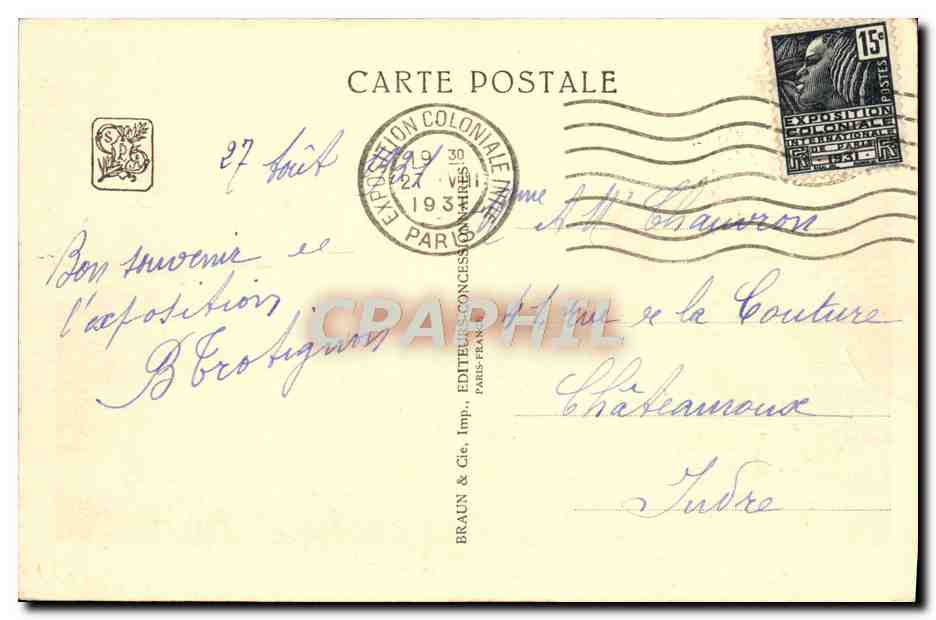 CARTE POSTALE
27 Août 1931
Bon souvenir de
l'exposition
B Trotignon
EXPOSITION COLONIALE INTLE
19 30
27 VIII
1931
PARIS
15c
POSTES
EXPOSITION
COLONIALE
INTERNATIONALE
DE PARIS
1931
A Mme Chauvron
rue de la Couture
Châteauroux
Indre
BRAUN & Cie, Imp., EDITEURS-CONCESSIONNAIRES
PARIS-FRANCE
CPAPHIL